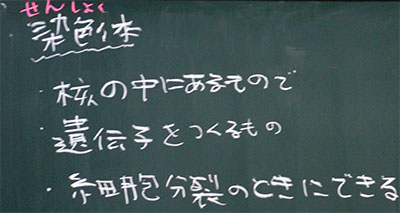 せんしょく
染色体
・核の中にあるもので
遺伝子をつくるもの
・細胞分裂のときにできる